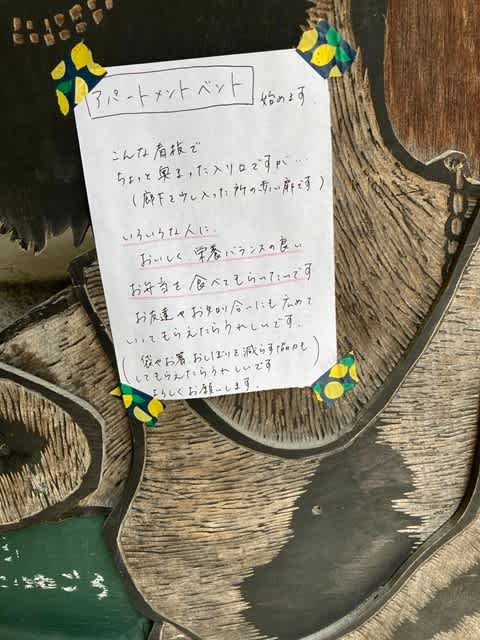 アパートメントベント 始めます.
こんな看板で
ちょっと奥まった入り口ですが…
(廊下を少し入った所の赤い扉です)
いろいろな人に、
おいしく 栄養バランスの良い
お弁当を 食べてもらいたいです
お友達やお知り合いにも広めて
いってもらえたらうれしいです.
(袋やお箸、おしぼりを減らす協力も
してもらえたらうれしいです)
よろしくお願いします.